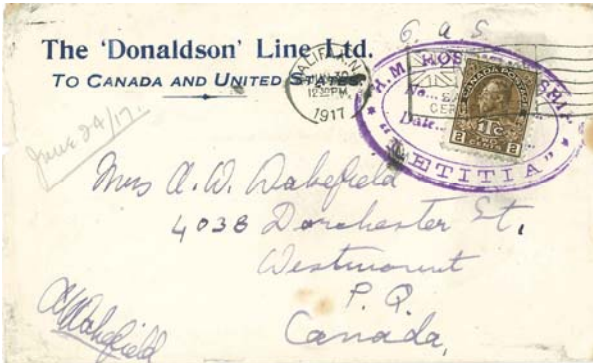 G A S
The 'Donaldson' Line Ltd.
TO CANADA AND UNITED STATES.
HALIFAX, N.
12 PM
1917
H.M. HOSPITAL SHIP
No...
Date...
"LETITIA"
CANADA POSTAGE
1Tc
2 CENTS 2
June 24/17.
Mrs A. W. Wakefield
4038 Dorchester St.
Westmount
P. Q.
Canada,
AWWakefield